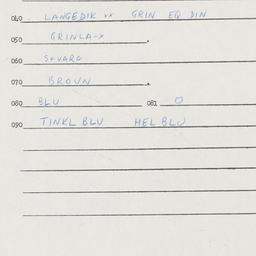 040 LANGEDIK vx GRIN EQ DIN
050 GRINLA-X
060 S+VARG
070 BROUN
080 BLU 081 O
090 TINKL BLU HEL BLU